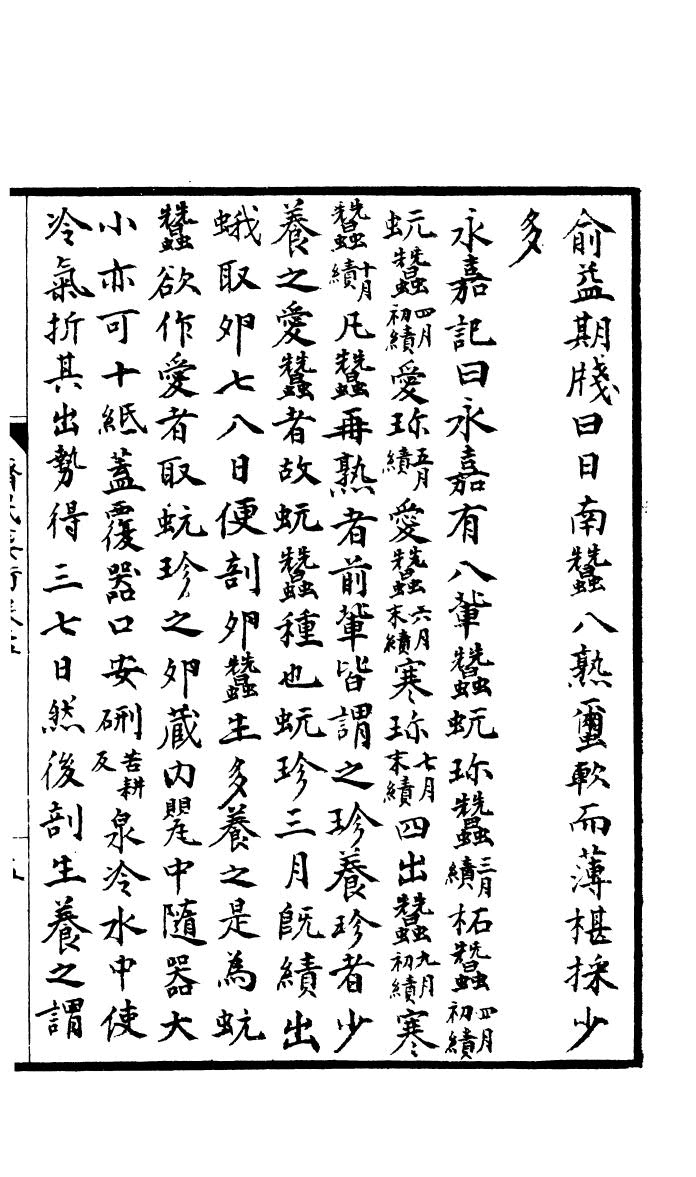 俞益期牋曰日南蠶八熟蠒軟而薄椹採少
多
永嘉記曰永嘉有八輩蠶蚖珎蠶三月績柘蠶四月初績
蚖蠶四月初績愛珎五月績愛蠶六月末績寒珎七月末績四出蠶九月初績寒
蠶十月績凡蠶再熟者前輩皆謂之珍養珍者少
養之愛蠶者故蚖蠶種也蚖珍三月既績出
蛾取卵七八日便剖卵蠶生多養之是為蚖
蠶欲作愛者取蚖珍之卵藏内甖中隨器大
小亦可十紙蓋覆器口安硎苦耕反泉冷水中使
冷氣折其出勢得三七日然後剖生養之謂